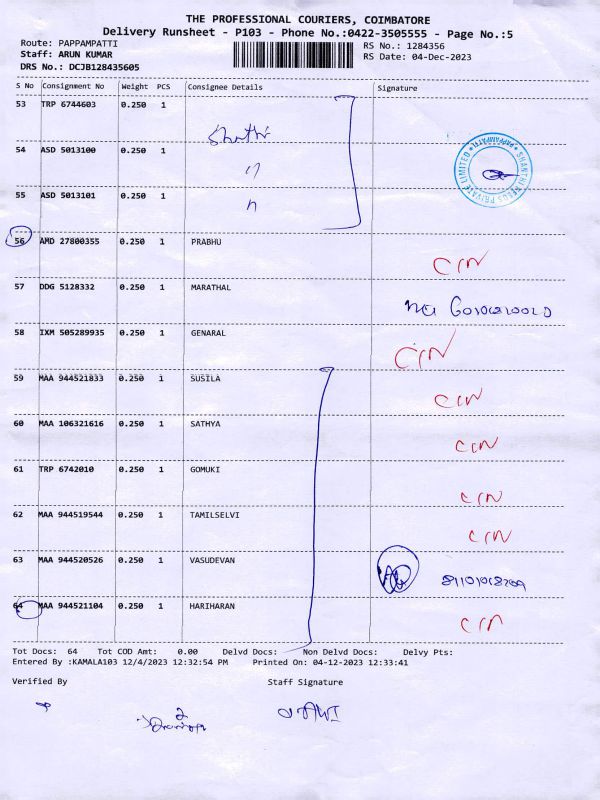 THE PROFESSIONAL COURIERS, COIMBATORE
Delivery Runsheet - P103 - Phone No.:0422-3505555 - Page No.:5
Route: PAPPAMPATTI RS No.: 1284356
Staff: ARUN KUMAR RS Date: 04-Dec-2023
DRS No.: DCJB128435605
S No Consignment No Weight PCS Consignee Details Signature
53 TRP 6744603 0.250 1
54 ASD 5013100 0.250 1
SHANTHI FEEDS PRIVATE LIMITED * PAPPAMPATTI *
55 ASD 5013101 0.250 1
56 AMD 27800355 0.250 1 PRABHU CIN
57 DDG 5128332 0.250 1 MARATHAL
58 IXM 505289935 0.250 1 GENARAL CIN
59 MAA 944521833 0.250 1 SUSILA CIN
60 MAA 106321616 0.250 1 SATHYA CIN
61 TRP 6742010 0.250 1 GOMUKI CIN
62 MAA 944519544 0.250 1 TAMILSELVI CIN
63 MAA 944520526 0.250 1 VASUDEVAN
64 MAA 944521104 0.250 1 HARIHARAN CIN
Tot Docs: 64 Tot COD Amt: 0.00 Delvd Docs: Non Delvd Docs: Delvy Pts:
Entered By :KAMALA103 12/4/2023 12:32:54 PM Printed On: 04-12-2023 12:33:41
Verified By Staff Signature